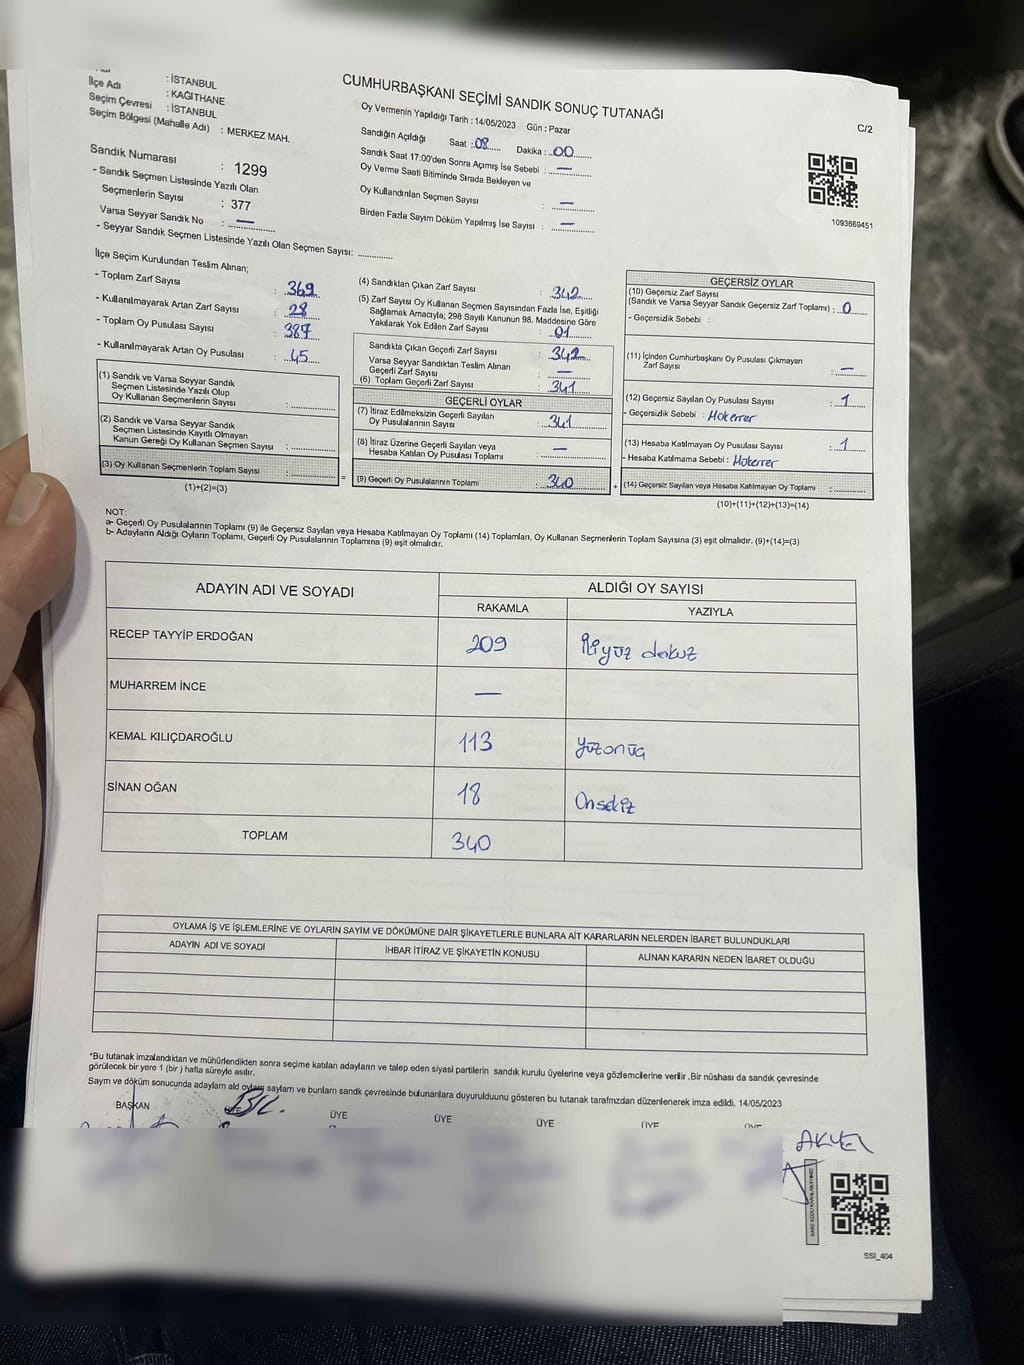 CUMHURBAŞKANI SEÇİMİ SANDIK SONUÇ TUTANAĞI
C/2
: İSTANBUL
İlçe Adı : KAĞITHANE
Seçim Çevresi : İSTANBUL
Seçim Bölgesi (Mahalle Adı) : MERKEZ MAH.
Sandık Numarası : 1299
- Sandık Seçmen Listesinde Yazılı Olan
Seçmenlerin Sayısı : 377
Varsa Seyyar Sandık No : —
- Seyyar Sandık Seçmen Listesinde Yazılı Olan Seçmen Sayısı: ............
Oy Vermenin Yapıldığı Tarih : 14/05/2023 Gün : Pazar
Sandığın Açıldığı Saat : 08 Dakika : 00
Sandık Saat 17:00'den Sonra Açımış İse Sebebi : —
Oy Verme Saati Bitiminde Sırada Bekleyen ve
Oy Kullandırılan Seçmen Sayısı : —
Birden Fazla Sayım Döküm Yapılmış İse Sayısı : —
1093669451
İlçe Seçim Kurulundan Teslim Alınan;
- Toplam Zarf Sayısı : 369
- Kullanılmayarak Artan Zarf Sayısı : 28
- Toplam Oy Pusulası Sayısı : 387
- Kullanılmayarak Artan Oy Pusulası : 45
(1) Sandık ve Varsa Seyyar Sandık
Seçmen Listesinde Yazılı Olup
Oy Kullanan Seçmenlerin Sayısı : ............
(2) Sandık ve Varsa Seyyar Sandık
Seçmen Listesinde Kayıtlı Olmayan
Kanun Gereği Oy Kullanan Seçmen Sayısı : ............
(3) Oy Kullanan Seçmenlerin Toplam Sayısı : ............
(1)+(2)=(3)
(4) Sandıktan Çıkan Zarf Sayısı : 342
(5) Zarf Sayısı Oy Kullanan Seçmen Sayısından Fazla İse, Eşitliği
Sağlamak Amacıyla; 298 Sayılı Kanunun 98. Maddesine Göre
Yakılarak Yok Edilen Zarf Sayısı : 01
Sandıkta Çıkan Geçerli Zarf Sayısı : 342
Varsa Seyyar Sandıktan Teslim Alınan
Geçerli Zarf Sayısı : —
(6) Toplam Geçerli Zarf Sayısı : 341
GEÇERLİ OYLAR
(7) İtiraz Edilmeksizin Geçerli Sayılan
Oy Pusulalarının Sayısı : 341
(8) İtiraz Üzerine Geçerli Sayılan veya
Hesaba Katılan Oy Pusulası Toplamı : —
= (9) Geçerli Oy Pusulalarının Toplamı : 340
GEÇERSİZ OYLAR
(10) Geçersiz Zarf Sayısı
(Sandık ve Varsa Seyyar Sandık Geçersiz Zarf Toplamı) : 0
- Geçersizlik Sebebi :
(11) İçinden Cumhurbaşkanı Oy Pusulası Çıkmayan
Zarf Sayısı : —
(12) Geçersiz Sayılan Oy Pusulası Sayısı : 1
- Geçersizlik Sebebi : Mükerrer
(13) Hesaba Katılmayan Oy Pusulası Sayısı : 1
- Hesaba Katılmama Sebebi : Mükerrer
+ (14) Geçersiz Sayılan veya Hesaba Katılmayan Oy Toplamı : ............
(10)+(11)+(12)+(13)=(14)
NOT:
a- Geçerli Oy Pusulalarının Toplamı (9) ile Geçersiz Sayılan veya Hesaba Katılmayan Oy Toplamı (14) Toplamları, Oy Kullanan Seçmenlerin Toplam Sayısına (3) eşit olmalıdır. (9)+(14)=(3)
b- Adayların Aldığı Oyların Toplamı, Geçerli Oy Pusulalarının Toplamına (9) eşit olmalıdır.
ADAYIN ADI VE SOYADI ALDIĞI OY SAYISI
RAKAMLA YAZIYLA
RECEP TAYYİP ERDOĞAN 209 İkiyüz dokuz
MUHARREM İNCE —
KEMAL KILIÇDAROĞLU 113 Yüzonüç
SİNAN OĞAN 18 Onsekiz
TOPLAM 340
OYLAMA İŞ VE İŞLEMLERİNE VE OYLARIN SAYIM VE DÖKÜMÜNE DAİR ŞİKAYETLERLE BUNLARA AİT KARARLARIN NELERDEN İBARET BULUNDUKLARI
ADAYIN ADI VE SOYADI İHBAR İTİRAZ VE ŞİKAYETİN KONUSU ALINAN KARARIN NEDEN İBARET OLDUĞU
*Bu tutanak imzalandıktan ve mühürlendikten sonra seçime katılan adayların ve talep eden siyasi partilerin sandık kurulu üyelerine veya gözlemcilerine verilir. Bir nüshası da sandık çevresinde
görülecek bir yere 1 (bir ) hafta süreyle asılır.
Sayım ve döküm sonucunda adayların aldı oyların sayıların ve bunların sandık çevresinde bulunanlara duyurulduğunu gösteren bu tutanak tarafımızdan düzenlenerek imza edildi. 14/05/2023
BAŞKAN ÜYE ÜYE ÜYE ÜYE ÜYE
AKYEL
SSI_404